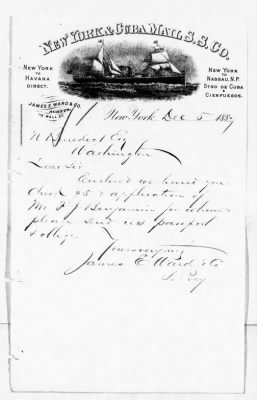 NEW YORK & CUBA MAIL S.S. CO.
NEW YORK
TO
HAVANA
DIRECT.
NEW YORK
TO
NASSAU, N.P.
STGO DE CUBA
&
CIENFUEGOS.
JAMES E. WARD & CO.
113 WALL ST.
New York, Dec 5 1889
N Benedict Esq
Washington
Dear Sir
Enclosed we hand you
check $5 & application of
Mr F J Benjamin for whom
please send us passport
& oblige
Yours very truly
James E Ward & Co